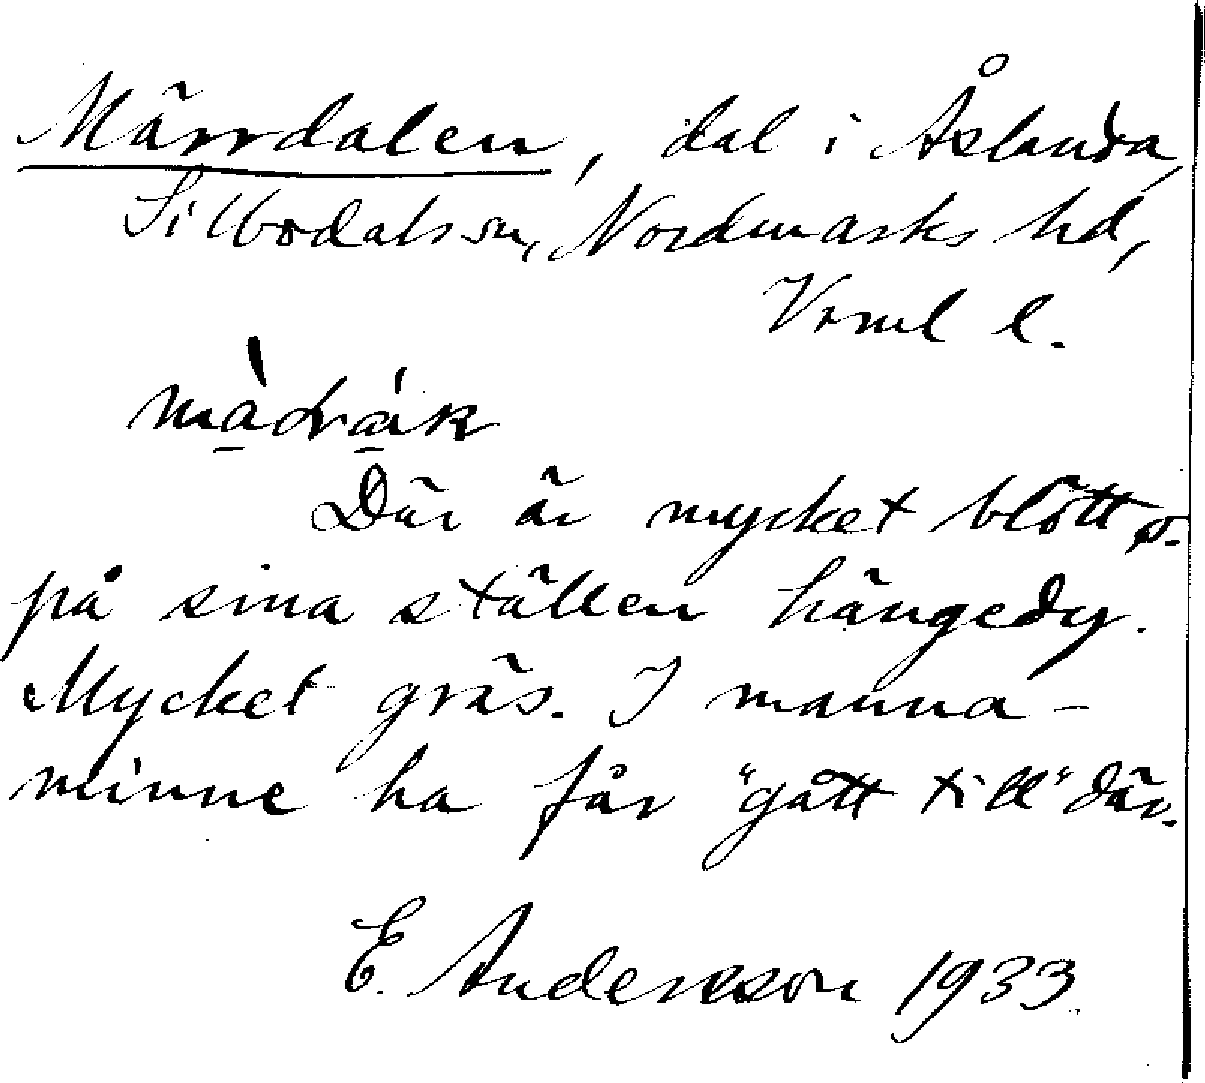 Märrdalen, dal i Åslanda,
Silbodals sn, Nordmarks hd,
Vrml l.
Där är mycket blött o.
på sina ställen hängedy.
Mycket gräs. I manna-
minne ha får "gått till" där.
E. Andersson 1933.